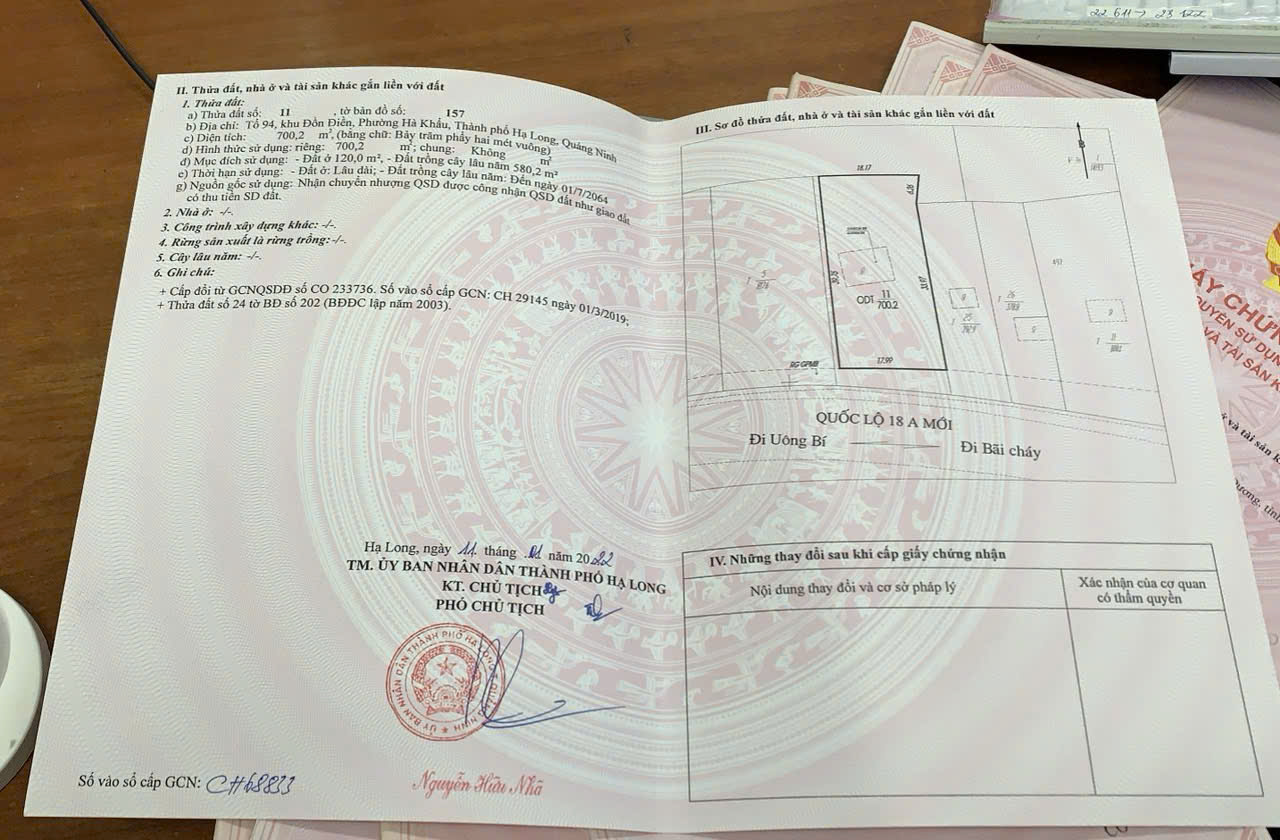 22 611 → 23 122
II. Thửa đất, nhà ở và tài sản khác gắn liền với đất
1. Thửa đất:
a) Thửa đất số: 11 , tờ bản đồ số: 157
b) Địa chỉ: Tổ 94, khu Đồn Điền, Phường Hà Khẩu, Thành phố Hạ Long, Quảng Ninh
c) Diện tích: 700,2 m², (bằng chữ: Bảy trăm phẩy hai mét vuông)
d) Hình thức sử dụng: riêng: 700,2 m²; chung: Không m²
đ) Mục đích sử dụng: - Đất ở 120,0 m², - Đất trồng cây lâu năm 580,2 m²
e) Thời hạn sử dụng: - Đất ở: Lâu dài; - Đất trồng cây lâu năm: Đến ngày 01/7/2064
g) Nguồn gốc sử dụng: Nhận chuyển nhượng QSD được công nhận QSD đất như giao đất
có thu tiền SD đất.
2. Nhà ở: -/-.
3. Công trình xây dựng khác: -/-.
4. Rừng sản xuất là rừng trồng: -/-.
5. Cây lâu năm: -/-.
6. Ghi chú:
+ Cấp đổi từ GCNQSDĐ số CO 233736. Số vào sổ cấp GCN: CH 29145 ngày 01/3/2019;
+ Thửa đất số 24 tờ BĐ số 202 (BĐĐC lập năm 2003).
Hạ Long, ngày 11 tháng 01 năm 2022
TM. ỦY BAN NHÂN DÂN THÀNH PHỐ HẠ LONG
KT. CHỦ TỊCH
PHÓ CHỦ TỊCH
ỦY BAN NHÂN DÂN THÀNH PHỐ HẠ LONG T. QUẢNG NINH
Nguyễn Hữu Nhã
Số vào sổ cấp GCN: CH68833
III. Sơ đồ thửa đất, nhà ở và tài sản khác gắn liền với đất
B
18.17
6.26
39.76
33.07
ODT 11
700.2
17.99
5
25
26
11
RG GPMB
QUỐC LỘ 18 A MỚI
Đi Uông Bí
Đi Bãi cháy
IV. Những thay đổi sau khi cấp giấy chứng nhận
Nội dung thay đổi và cơ sở pháp lý
Xác nhận của cơ quan
có thẩm quyền
ẤY CHỨN
UYỀN SỬ DỤN
VÀ TÀI SẢN K
và tài sản k
Dương, tỉnh